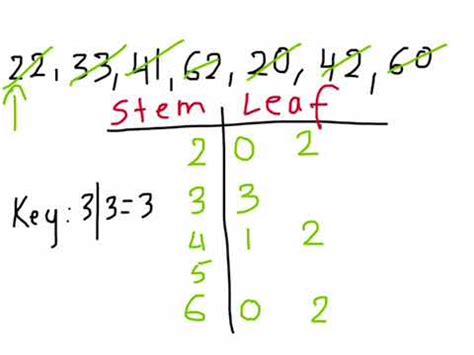 22, 33, 41, 62, 20, 42, 60
Stem Leaf
2 0 2
3 3
Key: 3|3=3
4 1 2
5
6 0 2